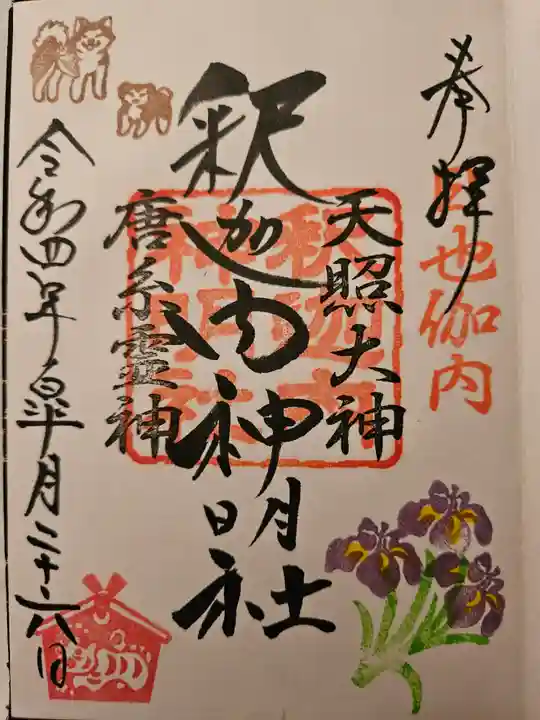 奉拝
也伽内
天照大神
釈迦内神明社
唐糸霊神
令和四年皐月二十六日